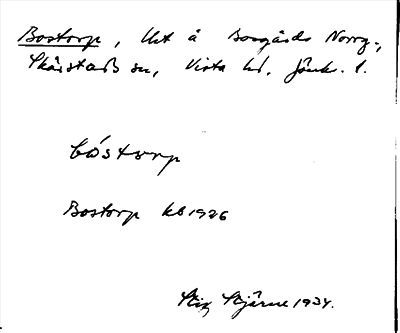 Bostorp, lht å Boogårds Norrg.,
Skärstads sn, Vista hd, Jönk. l.
bóstorp
Bostorp kb 1926
Stig Stjärne 1934.